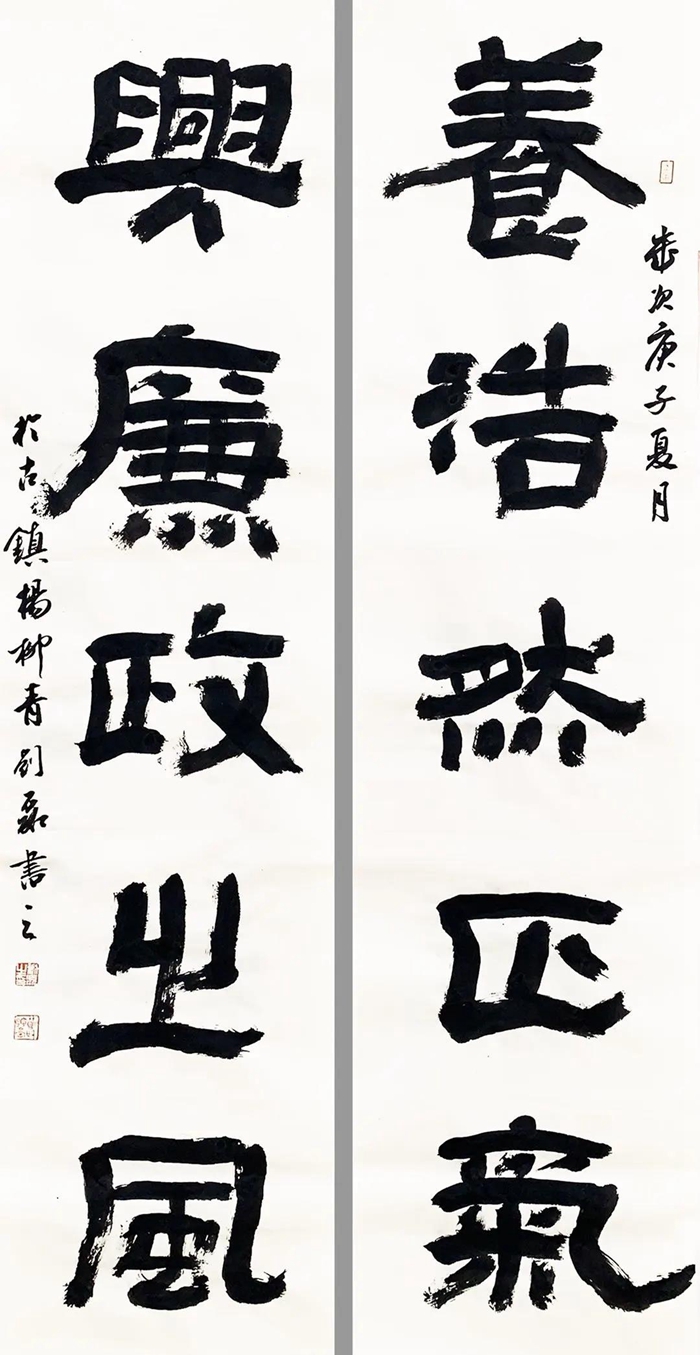 歲次庚子夏月
養浩然正氣
興廉政之風
於古鎮楊柳青劉磊書之